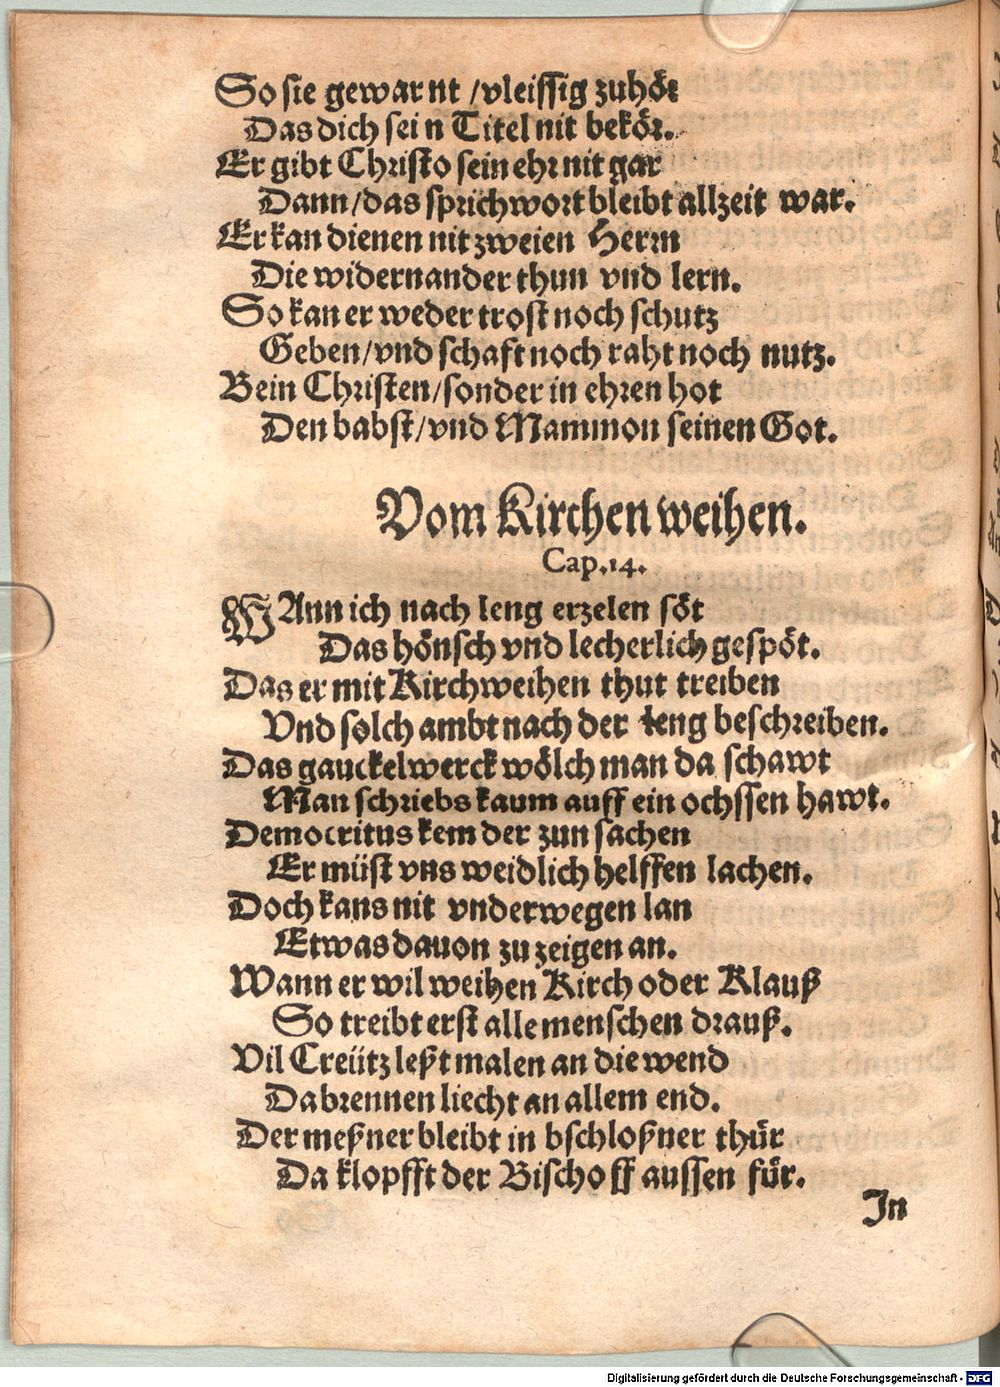 So sie gewarnt / vleissig zuhöt
Das dich sein Titel nit bekör.
Er gibt Christo sein ehr nit gar
Dann / das sprichwort bleibt allzeit war.
Er kan dienen nit zweien Herrn
Die widernander thun vnd lern.
So kan er weder trost noch schutz
Geben / vnd schaft noch raht noch nutz.
Bein Christen / sonder in ehren hot
Den babst / vnd Mammon seinen Got.
Vom Kirchen weihen.
Cap. 14.
WAnn ich nach leng erzelen söt
Das hönsch vnd lecherlich gespöt.
Das er mit Kirchweihen thut treiben
Vnd solch ambt nach der leng beschreiben.
Das gauckelwerck wölch man da schawt
Man schriebs kaum auff ein ochssen hawt.
Democritus kem der zun sachen
Er müst vns weidlich helffen lachen.
Doch kans nit vnderwegen lan
Etwas dauon zu zeigen an.
Wann er wil weihen Kirch oder Klauß
So treibt erst alle menschen drauß.
Vil Creütz leßt malen an die wend
Da brennen liecht an allem end.
Der meßner bleibt in bschloßner thür
Da klopfft der Bischoff aussen für.
In
Digitalisierung gefördert durch die Deutsche Forschungsgemeinschaft - DFG